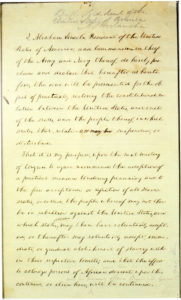 I Abraham Lincoln, President of the United
States of America, and Commander-in-Chief
of the Army and Navy thereof, do hereby pro-
claim and declare that hereafter, as hereto-
fore, the war will be prosecuted for the ob-
ject of practically restoring the constitutional re-
lation between the United States, and each
of the states, and the people thereof, in which
states that relation is, or may be suspended, or
disturbed.
That it is my purpose, upon the next meeting
of Congress to again recommend the adoption of
a practical measure tendering pecuniary aid to
the free acceptance or rejection of all slave-
states, so called, the people whereof may not then
be in rebellion against the United States, and
which states, may then have voluntarily adopted,
or thereafter may voluntarily adopt, imme-
diate, or gradual abolishment of slavery with-
in their respective limits; and that the effort
to colonize persons of African descent, upon this
continent, or elsewhere, will be continued.